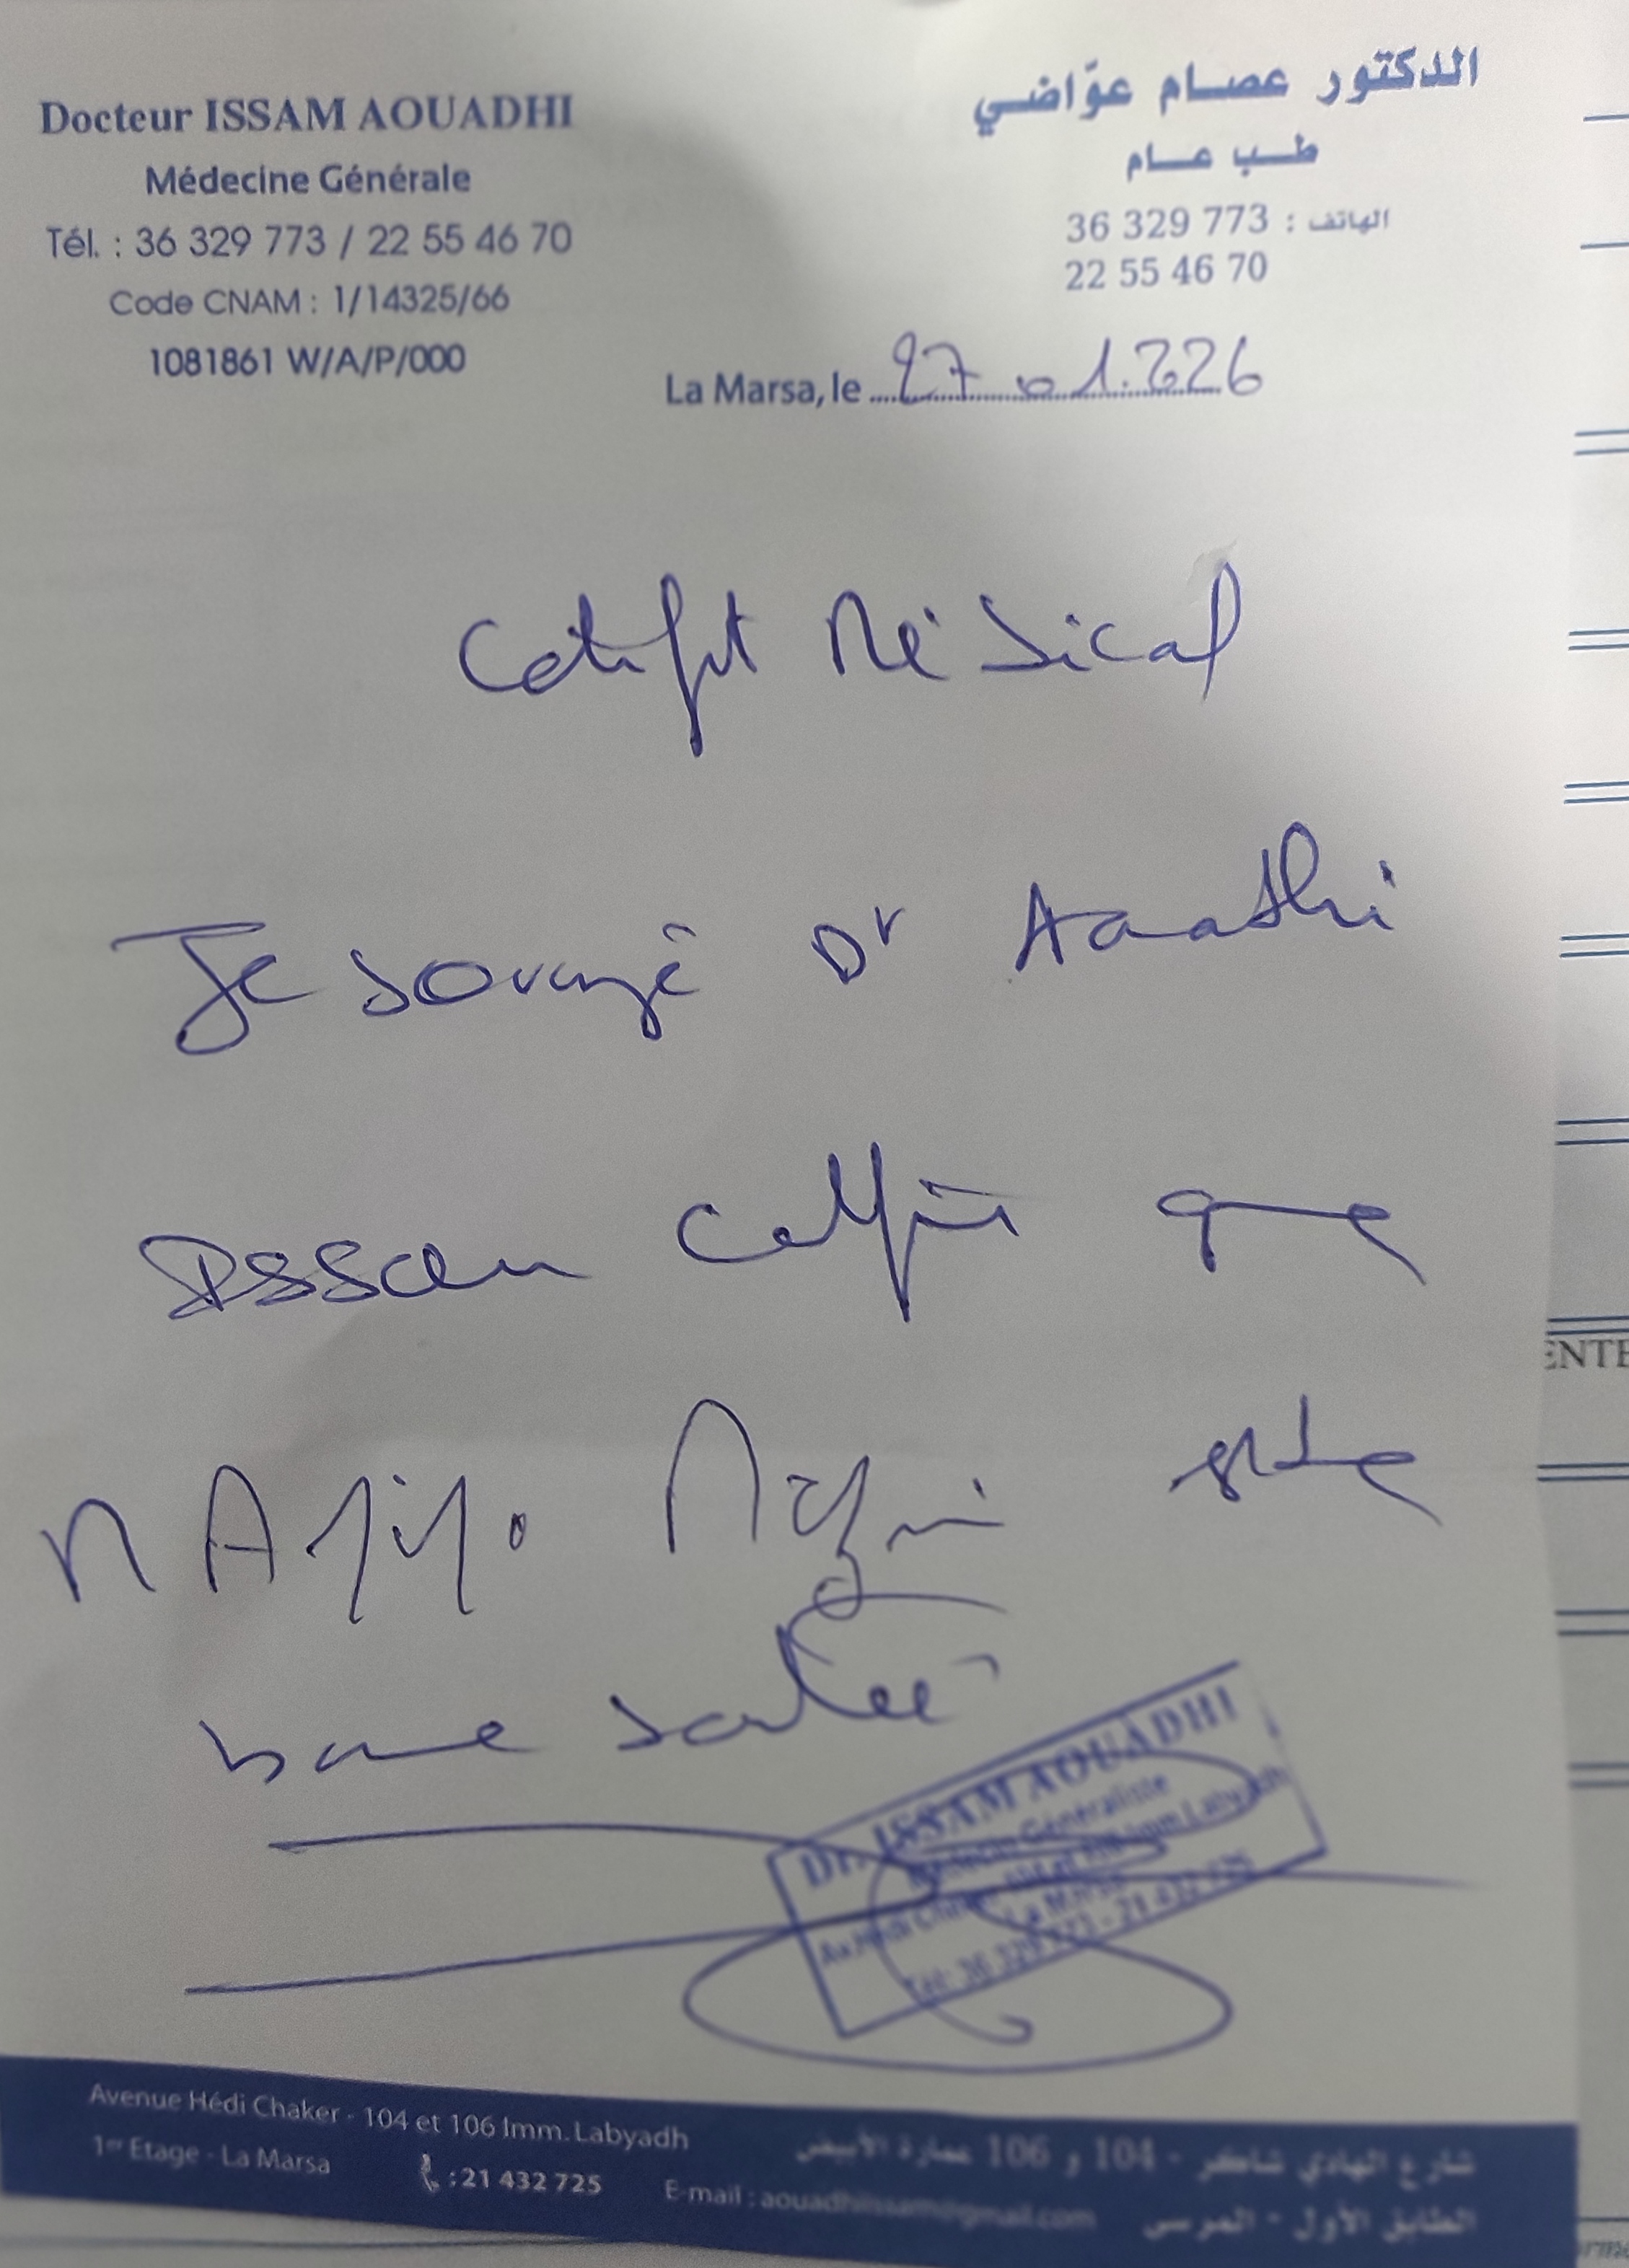 Docteur ISSAM AOUADHI
Médecine Générale
Tél. : 36 329 773 / 22 55 46 70
Code CNAM : 1/14325/66
1081861 W/A/P/000
الدكتور عصام عوّاضي
طب عام
الهاتف : 36 329 773
22 55 46 70
La Marsa, le 27 01.226
Certificat Médical
Je soussigné Dr Aouadhi
Issam certifie que
est de
bonne santé
Dr. ISSAM AOUADHI
Médecin Généraliste
Av Hédi Chaker 104 et 106 Imm Labyadh
La Marsa
Tél: 36 329 773 - 21 432 725
Avenue Hédi Chaker - 104 et 106 Imm. Labyadh
1er Etage - La Marsa
: 21 432 725
E-mail : aouadhiissam@gmail.com
شارع الهادي شاكر - 104 و 106 عمارة الأبيض
الطابق الأول - المرسى
ENTE